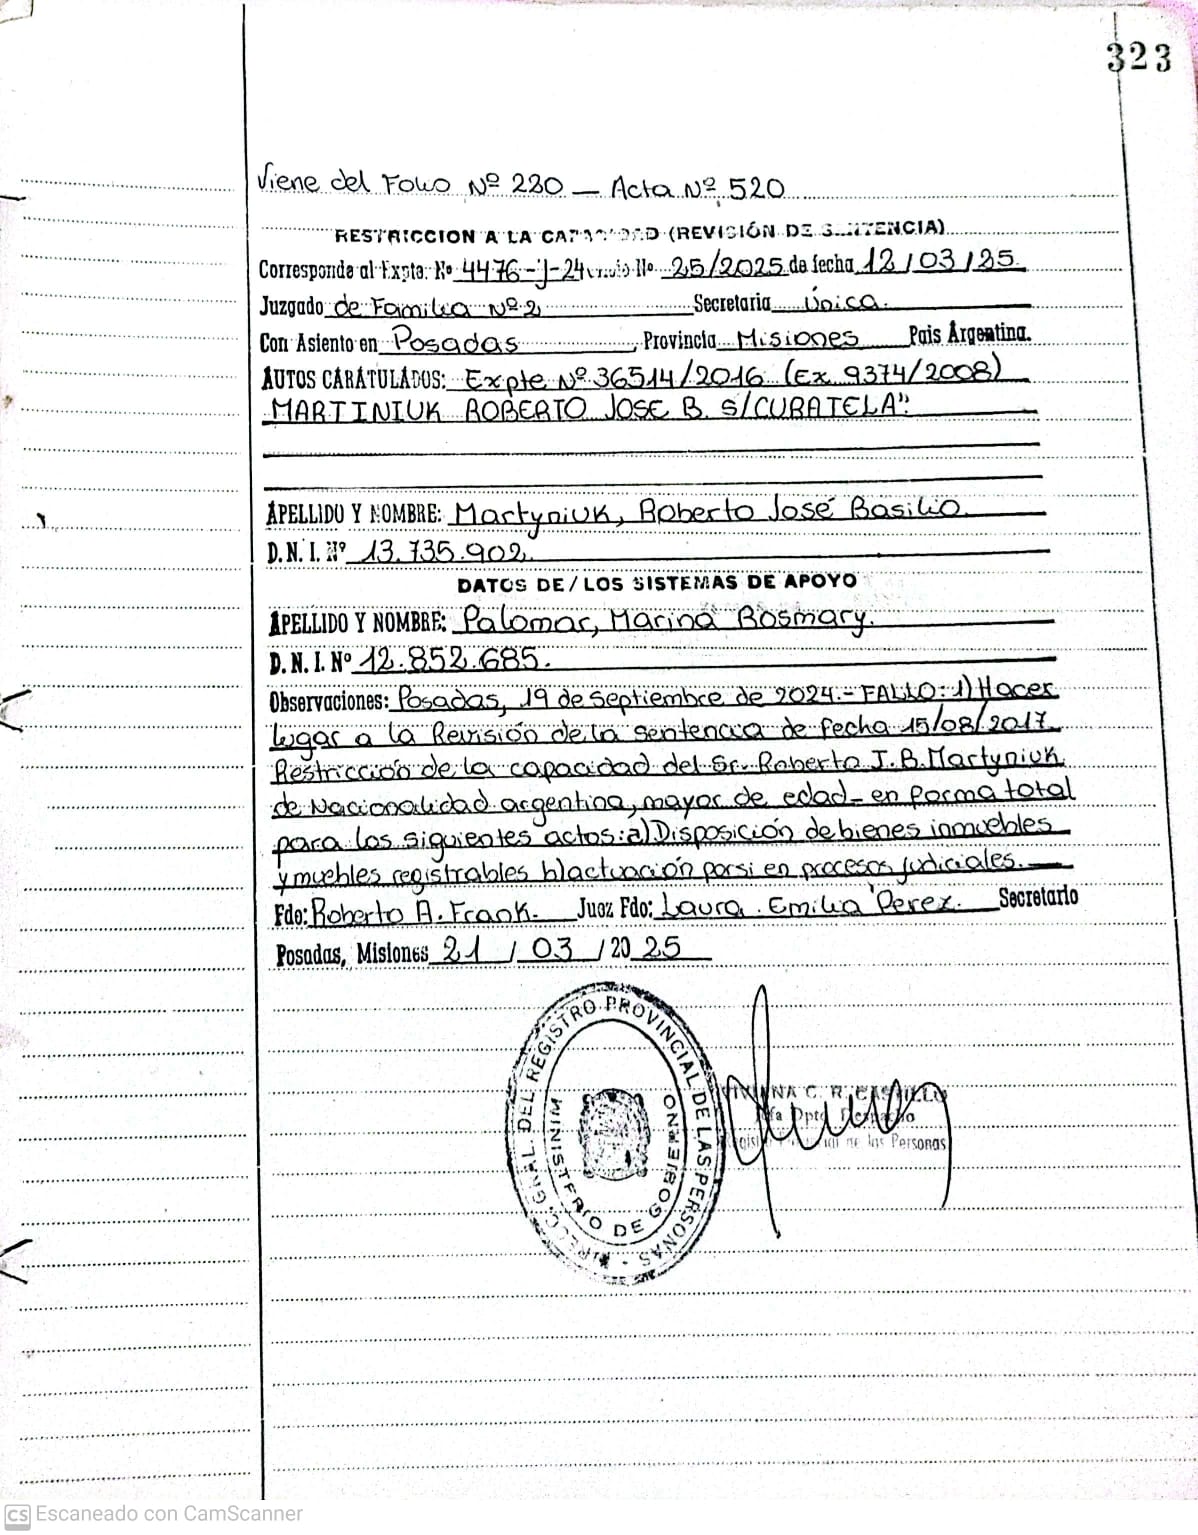 323
Viene del Folio Nº 230 — Acta Nº 520
RESTRICCION A LA CAPACIDAD (REVISIÓN DE SENTENCIA)
Corresponde al Expte: Nº 4476-J-24 Nº 25/2025 de fecha 12/03/25
Juzgado de Familia Nº 2 Secretaria Única.
Con Asiento en Posadas, Provincia Misiones Pais Argentina.
AUTOS CARATULADOS: Expte Nº 36514/2016 (Ex 9374/2008)
MARTINIUK ROBERTO JOSE B. S/CURATELA".
APELLIDO Y NOMBRE: Martyniuk, Roberto José Basilio.
D.N.I. Nº 13.735.902.
DATOS DE/LOS SISTEMAS DE APOYO
APELLIDO Y NOMBRE: Palomar, Marina Rosmary.
D.N.I. Nº 12.852.685.
Observaciones: Posadas, 19 de Septiembre de 2024.- FALLO: 1) Hacer
lugar a la Revisión de la sentencia de fecha 15/08/2017
Restricción de la capacidad del Sr. Roberto J. B. Martyniuk
de Nacionalidad argentina, mayor de edad - en forma total
para los siguientes actos: a) Disposición de bienes inmuebles
y muebles registrables b) actuación por si en procesos judiciales.
Fdo: Roberto A. Frank. Juez Fdo: Laura Emilia Perez. Secretario
Posadas, Misiones 21/03/2025
DIRECC. GRAL. DEL REGISTRO PROVINCIAL DE LAS PERSONAS
MINISTERIO DE GOBIERNO
VIVIANA C. R. CASTILLO
Jefa Dpto. Despacho
de las Personas
CS Escaneado con CamScanner